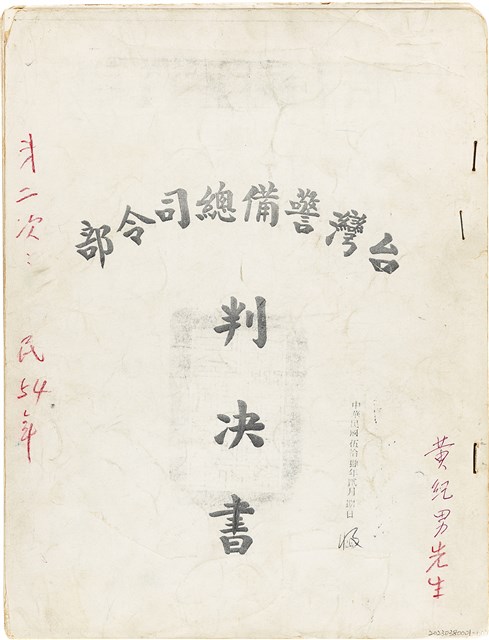 台灣警備總司令部
判決書
中華民國伍拾肆年貳月
收
黃紀男先生
第二次：民54年
20230380001-1